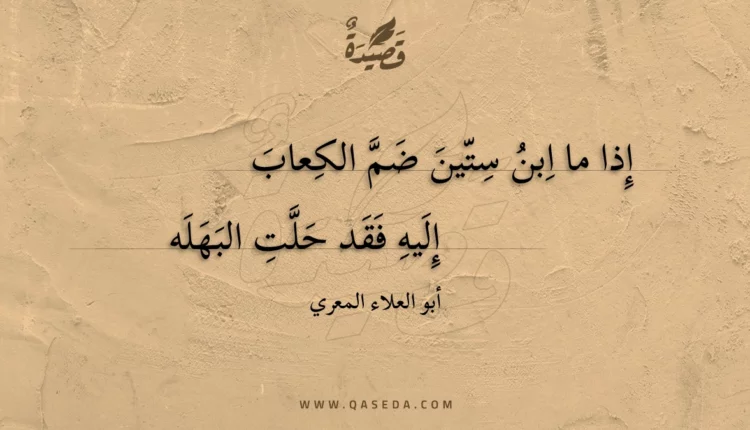 قَصِيدَةٌ
إِذا ما اِبنُ سِتّينَ ضَمَّ الكِعابَ
إِلَيهِ فَقَد حَلَّتِ البَهَلَه
أبو العلاء المعري
WWW.QASEDA.COM